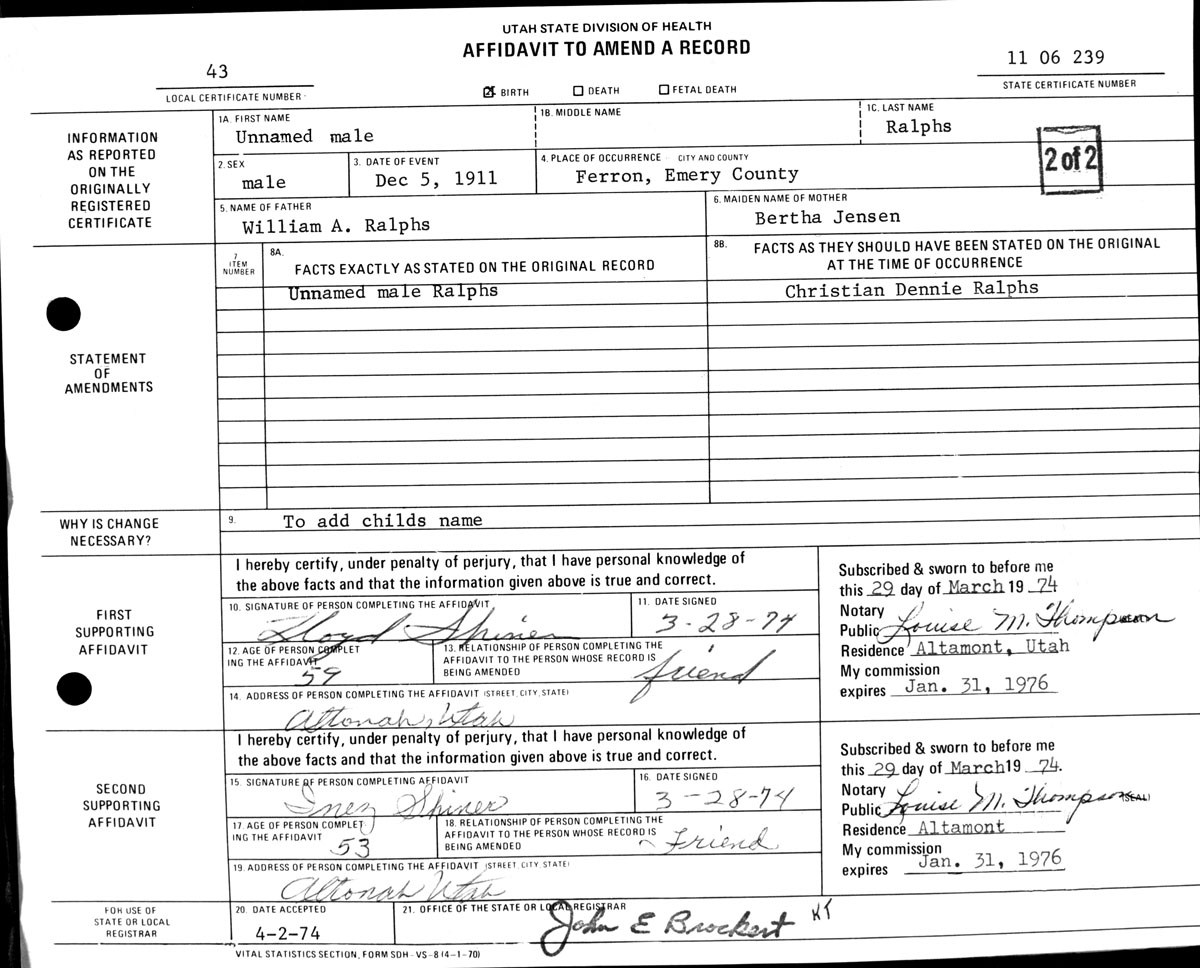 UTAH STATE DIVISION OF HEALTH
AFFIDAVIT TO AMEND A RECORD
43
LOCAL CERTIFICATE NUMBER
BIRTH DEATH FETAL DEATH
11 06 239
STATE CERTIFICATE NUMBER
INFORMATION
AS REPORTED
ON THE
ORIGINALLY
REGISTERED
CERTIFICATE
1A. FIRST NAME
Unnamed male
1B. MIDDLE NAME
1C. LAST NAME
Ralphs
2. SEX
male
3. DATE OF EVENT
Dec 5, 1911
4. PLACE OF OCCURRENCE CITY AND COUNTY
Ferron, Emery County
2 of 2
5. NAME OF FATHER
William A. Ralphs
6. MAIDEN NAME OF MOTHER
Bertha Jensen
STATEMENT
OF
AMENDMENTS
7
ITEM
NUMBER
8A.
FACTS EXACTLY AS STATED ON THE ORIGINAL RECORD
8B. FACTS AS THEY SHOULD HAVE BEEN STATED ON THE ORIGINAL
AT THE TIME OF OCCURRENCE
Unnamed male Ralphs
Christian Dennie Ralphs
WHY IS CHANGE
NECESSARY?
9. To add childs name
FIRST
SUPPORTING
AFFIDAVIT
I hereby certify, under penalty of perjury, that I have personal knowledge of
the above facts and that the information given above is true and correct.
10. SIGNATURE OF PERSON COMPLETING THE AFFIDAVIT
Lloyd Shiner
11. DATE SIGNED
3-28-74
12. AGE OF PERSON COMPLET
ING THE AFFIDAVIT
59
13. RELATIONSHIP OF PERSON COMPLETING THE
AFFIDAVIT TO THE PERSON WHOSE RECORD IS
BEING AMENDED
friend
14. ADDRESS OF PERSON COMPLETING THE AFFIDAVIT (STREET, CITY, STATE)
Altonah, Utah
Subscribed & sworn to before me
this 29 day of March 19 74
Notary
Public Louise M. Thompson (SEAL)
Residence Altamont, Utah
My commission
expires Jan. 31, 1976
SECOND
SUPPORTING
AFFIDAVIT
I hereby certify, under penalty of perjury, that I have personal knowledge of
the above facts and that the information given above is true and correct.
15. SIGNATURE OF PERSON COMPLETING AFFIDAVIT
Inez Shiner
16. DATE SIGNED
3-28-74
17. AGE OF PERSON COMPLET
ING THE AFFIDAVIT
53
18. RELATIONSHIP OF PERSON COMPLETING THE
AFFIDAVIT TO THE PERSON WHOSE RECORD IS
BEING AMENDED
Friend
19. ADDRESS OF PERSON COMPLETING THE AFFIDAVIT (STREET, CITY, STATE)
Altonah Utah
Subscribed & sworn to before me
this 29 day of March 19 74.
Notary
Public Louise M. Thompson (SEAL)
Residence Altamont
My commission
expires Jan. 31, 1976
FOR USE OF
STATE OR LOCAL
REGISTRAR
20. DATE ACCEPTED
4-2-74
21. OFFICE OF THE STATE OR LOCAL REGISTRAR
John E Brockert KT
VITAL STATISTICS SECTION, FORM SDH-VS-8 (4-1-70)